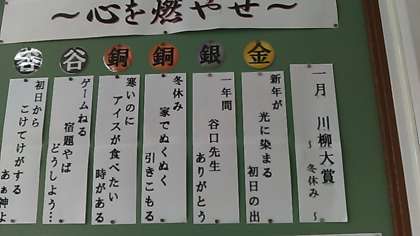 ～心を燃やせ～
一月 川柳大賞
～ 冬休み ～
金
新年が
光に染まる
初日の出
銀
一年間
谷口先生
ありがとう
銅
冬休み
家でぬくぬく
引きこもる
銅
寒いのに
アイスが食べたい
時がある
谷
ゲームねる
宿題やば
どうしよう…
初日から
こけてけがする
あぁ神よ